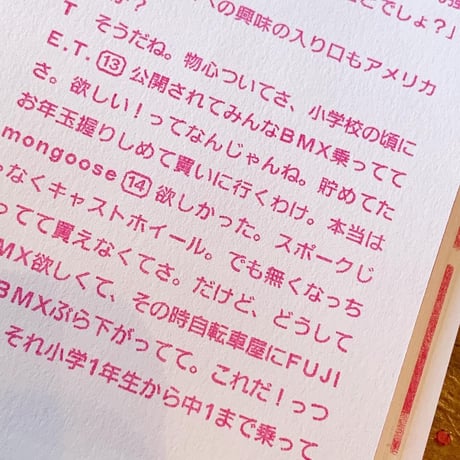 への興味の入り口もアメリカ
T そうだね。物心ついてさ、小学校の頃に
E.T. 13 公開されてみんなBMX乗ってて
さ。欲しい！ってなんじゃんね。貯めてた
お年玉握りしめて買いに行くわけ。本当は
mongoose 14 欲しかった。スポークじ
なくキャストホイール。でも無くなっち
ってて買えなくてさ。だけど、どうして
MX欲しくて、その時自転車屋にFUJI
BMXぶら下がってて。これだ！っつ
それ小学1年生から中1まで乗って